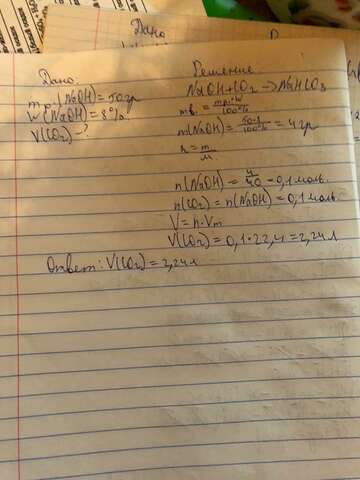 Дано
Дано:
m р. (NaOH) = 50 гр
W (NaOH) = 8%
V(CO₂) - ?
Решение
NaOH + CO₂ → NaHCO₃
mв. = mр.·W / 100%
m(NaOH) = 50·8 / 100% = 4 гр
n = m / M
n(NaOH) = 4 / 40 = 0,1 моль.
n(CO₂) = n(NaOH) = 0,1 моль.
V = n · Vm
V(CO₂) = 0,1 · 22,4 = 2,24 л
Ответ: V(CO₂) = 2,24 л